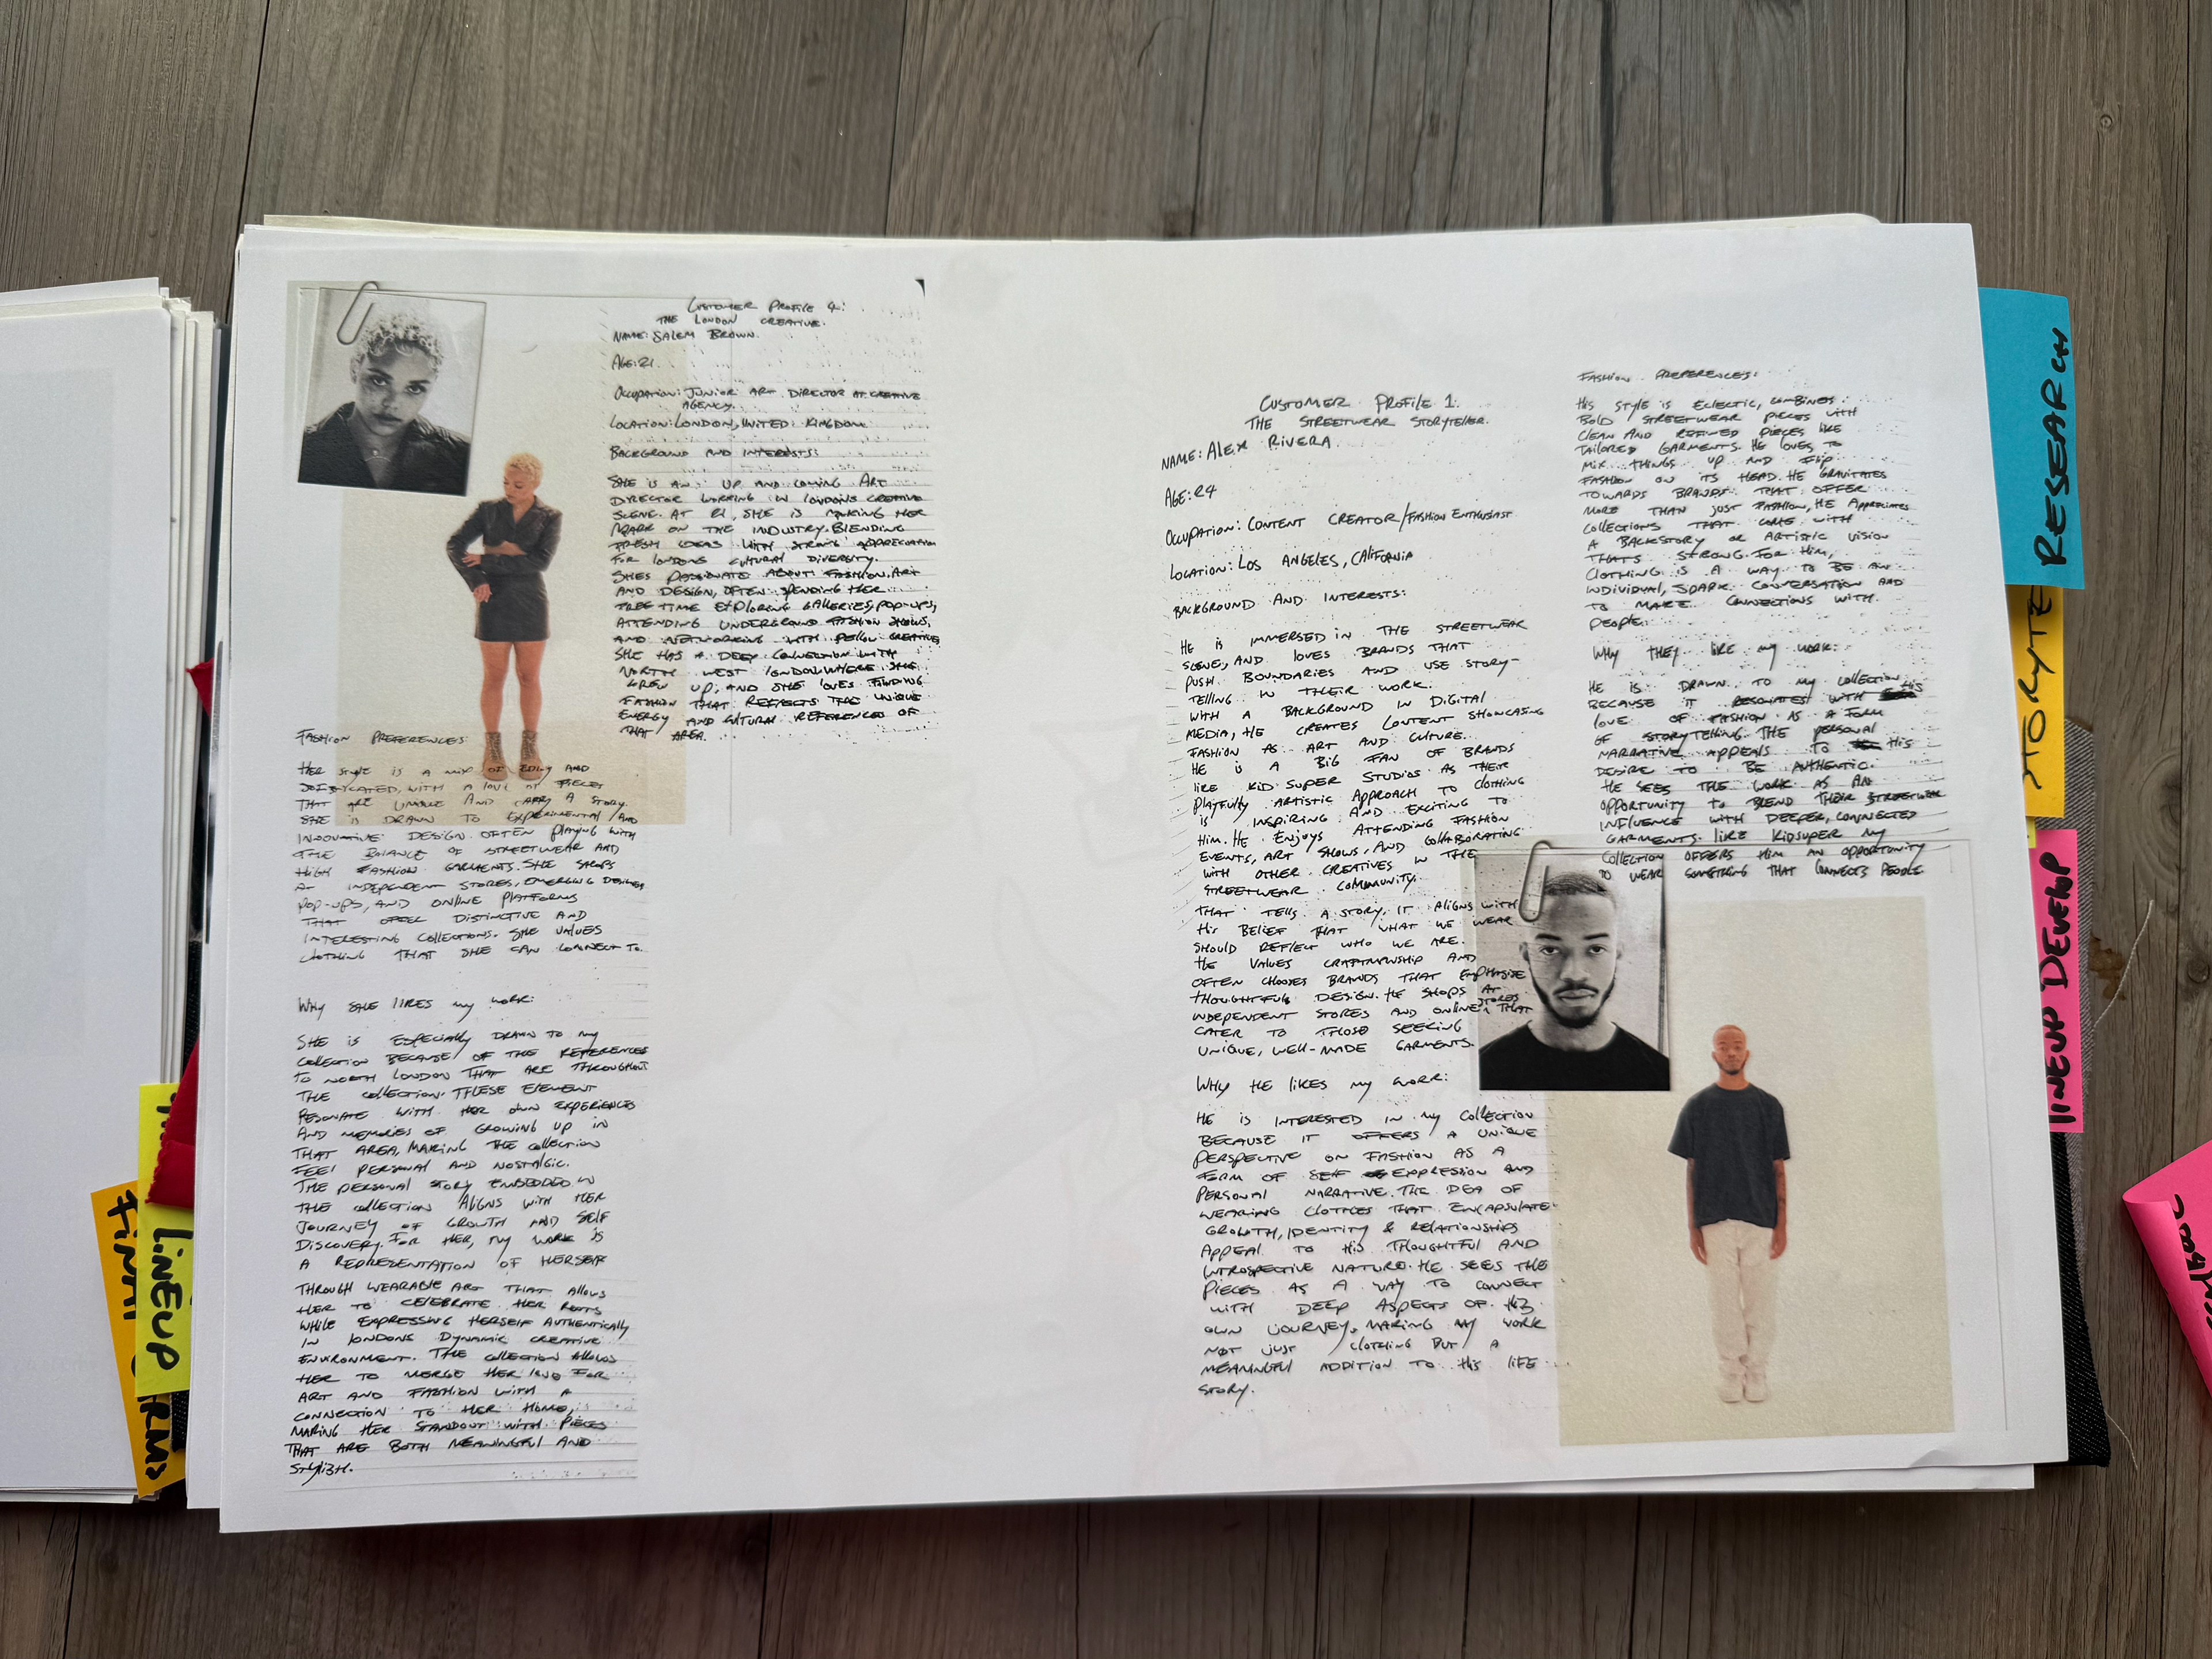 CUSTOMER PROFILE 4:
THE LONDON CREATIVE.
NAME: SALEM BROWN.
AGE: 21
OCCUPATION: JUNIOR ART DIRECTOR AT CREATIVE
AGENCY.
LOCATION: LONDON, UNITED KINGDOM
BACKGROUND AND INTERESTS:
SHE IS AN UP AND COMING ART
DIRECTOR WORKING IN LONDONS CREATIVE
SCENE. AT 21, SHE IS MAKING HER
MARK ON THE INDUSTRY. BLENDING
FRESH IDEAS WITH STRONG APPRECIATION
FOR LONDONS CULTURAL DIVERSITY.
SHES PASSIONATE ABOUT FASHION. ART
AND DESIGN, OFTEN SPENDING HER
FREE TIME EXPLORING GALLERIES, POP-UPS,
ATTENDING UNDERGROUND FASHION SHOWS,
AND NETWORKING WITH FELLOW CREATIVE
SHE HAS A DEEP CONNECTION WITH
NORTH WEST LONDON. WHERE SHE
GREW UP, AND SHE LOVES FINDING
FASHION THAT REFLECTS THE UNIQUE
ENERGY AND CULTURAL REFERENCES OF
THAT AREA.
FASHION PREFERENCES
HER STYLE IS A MIX OF EDGY AND
WITH A LOVE OF PIECES
THAT ARE UNIQUE AND CARRY A STORY.
SHE IS DRAWN TO EXPERIMENTAL AND
INNOVATIVE DESIGN OFTEN PLAYING WITH
THE BALANCE OF STREETWEAR AND
HIGH FASHION GARMENTS. SHE SHOPS
AT INDEPENDENT STORES, EMERGING DESIGNER
POP-UPS, AND ONLINE PLATFORMS
THAT OFFER DISTINCTIVE AND
INTERESTING COLLECTIONS. SHE VALUES
CLOTHING THAT SHE CAN CONNECT TO.
WHY SHE LIKES MY WORK:
SHE IS ESPECIALLY DRAWN TO MY
COLLECTION BECAUSE OF THE REFERENCES
TO NORTH LONDON THAT ARE THROUGHOUT
THE COLLECTION. THESE ELEMENT
RESONATE WITH HER OWN EXPERIENCES
AND MEMORIES OF GROWING UP IN
THAT AREA, MAKING THE COLLECTION
FEEL PERSONAL AND NOSTALGIC.
THE PERSONAL STORY EMBEDDED IN
THE COLLECTION ALIGNS WITH HER
JOURNEY OF GROWTH AND SELF
DISCOVERY. FOR HER, MY WORK IS
A REPRESENTATION OF HERSELF
THROUGH WEARABLE ART THAT ALLOWS
HER TO CELEBRATE HER ROOTS
WHILE EXPRESSING HERSELF AUTHENTICALLY
IN LONDONS DYNAMIC CREATIVE
ENVIRONMENT. THE COLLECTION ALLOWS
HER TO MERGE HER LOVE FOR
ART AND FASHION WITH A
CONNECTION TO HER HOME,
MAKING HER STANDOUT WITH PIECES
THAT ARE BOTH MEANINGFUL AND
STYLISH.
CUSTOMER PROFILE 1:
THE STREETWEAR STORYTELLER.
NAME: ALEX RIVERA.
AGE: 24
OCCUPATION: CONTENT CREATOR/FASHION ENTHUSIAST
LOCATION: LOS ANGELES, CALIFORNIA
BACKGROUND AND INTERESTS:
HE IS IMMERSED IN THE STREETWEAR
SCENE, AND LOVES BRANDS THAT
PUSH BOUNDARIES AND USE STORY-
TELLING IN THEIR WORK.
WITH A BACKGROUND IN DIGITAL
MEDIA, HE CREATES CONTENT SHOWCASING
FASHION AS ART AND CULTURE.
HE IS A BIG FAN OF BRANDS
LIKE KID SUPER STUDIOS AS THEIR
PLAYFULLY ARTISTIC APPROACH TO CLOTHING
IS INSPIRING AND EXCITING TO
HIM. HE ENJOYS ATTENDING FASHION
EVENTS, ART SHOWS, AND COLLABORATING
WITH OTHER CREATIVES IN THE
STREETWEAR COMMUNITY.
THAT TELLS A STORY. IT ALIGNS WITH
HIS BELIEF THAT WHAT WE WEAR
SHOULD REFLECT WHO WE ARE.
HE VALUES CRAFTMANSHIP AND
OFTEN CHOOSES BRANDS THAT EMPHASISE
THOUGHTFUL DESIGN. HE SHOPS AT
INDEPENDENT STORES AND ONLINE STORES THAT
CATER TO THOSE SEEKING
UNIQUE, WELL-MADE GARMENTS.
WHY HE LIKES MY WORK:
HE IS INTERESTED IN MY COLLECTION
BECAUSE IT OFFERS A UNIQUE
PERSPECTIVE ON FASHION AS A
FORM OF SELF EXPRESSION AND
PERSONAL NARRATIVE. THE IDEA OF
WEARING CLOTHES THAT ENCAPSULATE
GROWTH, IDENTITY & RELATIONSHIPS
APPEAL TO HIS THOUGHTFUL AND
INTROSPECTIVE NATURE. HE SEES THE
PIECES AS A WAY TO CONNECT
WITH DEEP ASPECTS OF HIS
OWN JOURNEY, MAKING MY WORK
NOT JUST CLOTHING BUT A
MEANINGFUL ADDITION TO HIS LIFE
STORY.
FASHION PREFERENCES:
HIS STYLE IS ECLECTIC, COMBINES
BOLD STREETWEAR PIECES WITH
CLEAN AND REFINED PIECES LIKE
TAILORED GARMENTS. HE LOVES TO
MIX THINGS UP AND FLIP
FASHION ON ITS HEAD. HE GRAVITATES
TOWARDS BRANDS THAT OFFER
MORE THAN JUST FASHION, HE APPRECIATES
COLLECTIONS THAT COME WITH
A BACKSTORY OR ARTISTIC VISION
THATS STRONG. FOR HIM,
CLOTHING IS A WAY TO BE AN
INDIVIDUAL, SPARK CONVERSATION AND
TO MAKE CONNECTIONS WITH
PEOPLE.
WHY THEY LIKE MY WORK:
HE IS DRAWN TO MY COLLECTION
BECAUSE IT RESONATES WITH HIS
LOVE OF FASHION AS A FORM
OF STORYTELLING. THE PERSONAL
NARRATIVE APPEALS TO HIS
DESIRE TO BE AUTHENTIC.
HE SEES THE WORK AS AN
OPPORTUNITY TO BLEND THEIR STREETWEAR
INFLUENCE WITH DEEPER, CONNECTED
GARMENTS. LIKE KIDSUPER MY
COLLECTION OFFERS HIM AN OPPORTUNITY
TO WEAR SOMETHING THAT CONNECTS PEOPLE.
RESEARCH
STORYTE
LINEUP DEVELOP
LINEUP
FINAL